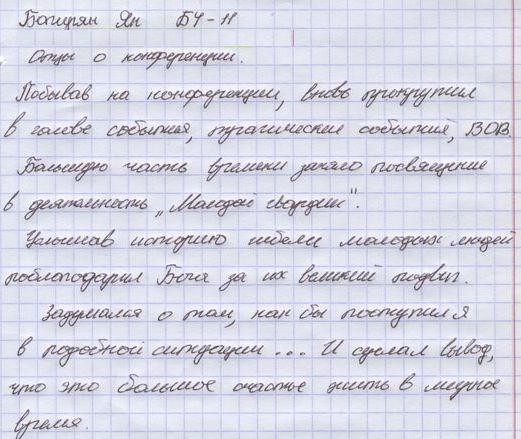 Багирян Ян БЧ-11
Отзыв о конференции.
Побывав на конференции, вновь прокрутил
в голове события, трагические события, ВОВ.
Большую часть времени заняло посвящение
в деятельность „Молодой гвардии".
Услышав историю гибели молодых людей
поблагодарил Бога за их великий подвиг.
Задумался о том, как бы поступил я
в подобной ситуации... И сделал вывод,
что это большое счастье жить в мирное
время.